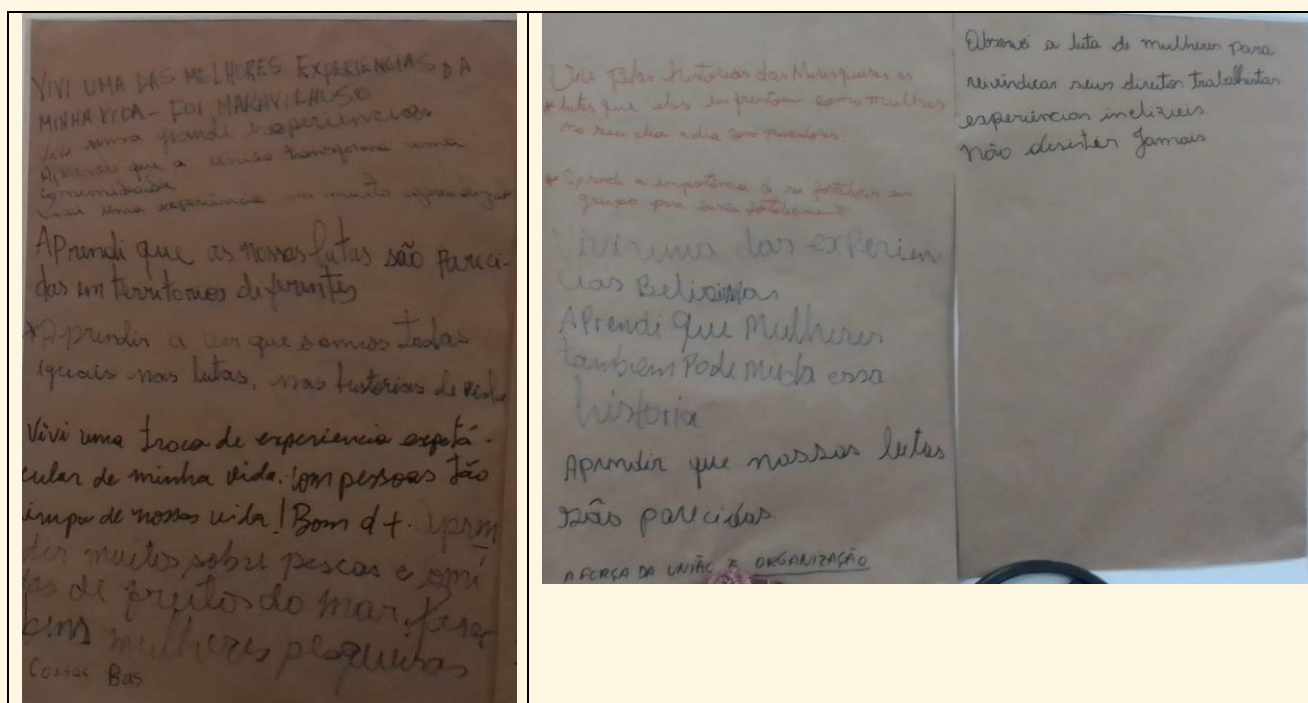 VIVI UMA DAS MELHORES EXPERIENCIAS DA
MINHA VIDA - FOI MARAVILHOSO
Vivi uma grande experiencias
Aprendi que a união transforma uma
comunidade
Vivi uma experiência um muito aprendizado
APrendi que as nossas lutas são pareci-
das em territorios diferentes
*Apprendir a ver que somos todas
iguais nas lutas, nas historias de vida
Vivi uma troca de experiencia espetá-
cular de minha vida. com pessoas tão
impar de nossas vida! Bom d+. Apren
der muitos sobre pescas e
de fruitos do mar.
mulheres pesqueiras
Coisas Bas
Vivi pelas historias das Marisqueiras as
* lutas que elas enfrentam como mulheres
no seu dia a dia
* Aprendi a importância de se fortalecer em
grupo para
Vivi uma das experien
cias
APrendi que Mulheres
tambem Pode muda essa
historia
Aprendir que nossas lutas
são parecidas.
A FORÇA DA UNIÃO E ORGANIZAÇÃO
Observei a luta de mulheres para
reivindicar seus direitos trabalhistas
experiências
Não desistir Jamais